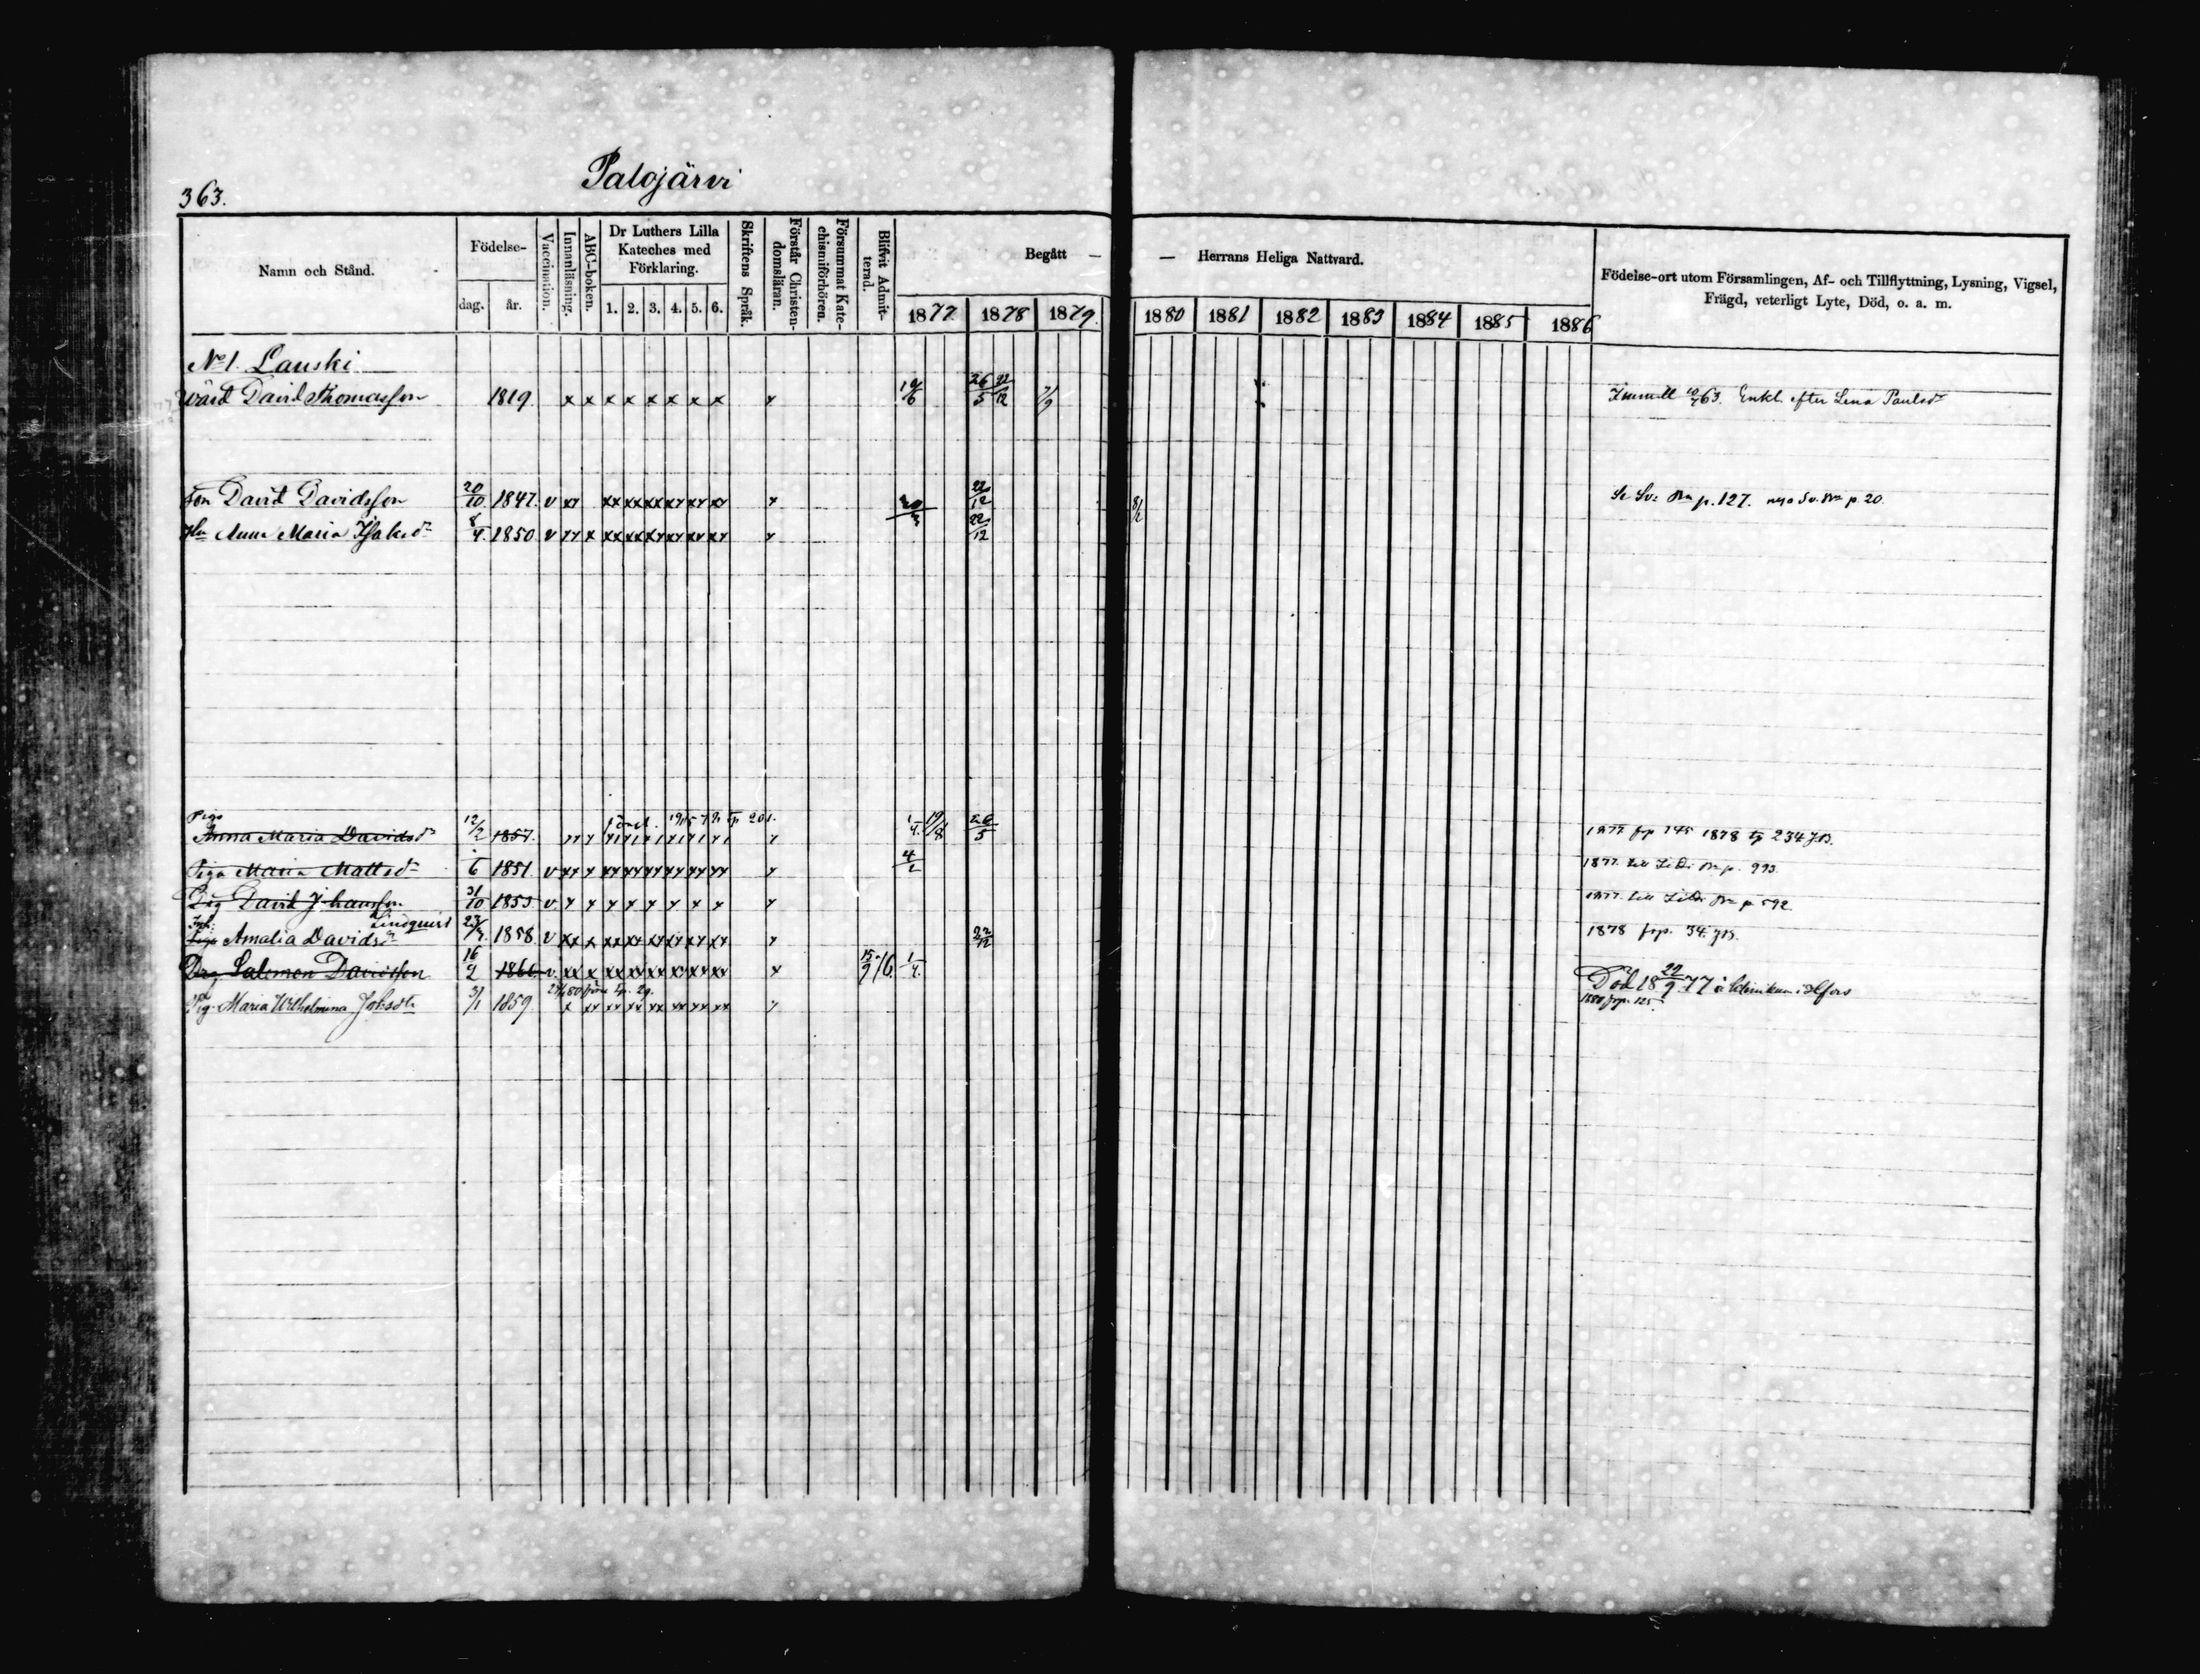 363.
Palojärvi
Namn och Stånd.
Födelse-
dag.
år.
Vaccination.
Innanläsning.
ABC-boken.
Dr Luthers Lilla
Kateches med
Förklaring.
1. 2. 3. 4. 5. 6.
Skriftens Språk.
Förstår Christen-
domsläran.
Försummat Kate-
chismiförhören.
Blifvit Admit-
terad.
Begått — — Herrans Heliga Nattvard.
1877. 1878 1879. 1880 1881 1882 1883 1884 1885 1886
Födelse-ort utom Församlingen, Af- och Tillflyttning, Lysning, Vigsel,
Frägd, veterligt Lyte, Död, o. a. m.
No 1. Lauski
Wärd David Thomasson 1819. x x x x x x x x 26/5 22/12 7/9 63. Enkl. efter Lena Paulsdr
Son David Davidsson 20/10 1847. v xx xx xx xx xx xx xx 22/12 8/2 p. 127. p. 20.
Hu Anna Maria Isaksdr 8/4. 1850 v xx x xx xx xx xx xx xx 22/12
Piga
Anna Maria Davidsdr 12/2 1857. 1/4. 19/8 26/5 1878 234
Piga Maria Mattsdr 6 1851. v xx x xx xx xx xx xx xx 4/2 1877. till p. 993.
Drg David Johansson 31/10 1853. v. x x x x x x x x till p. 592
Lindqvist
Piga Amalia Davidsdr 1858. v xx x xx xx xx xx xx xx 22/12 1878 frp. 34.
Drg Salomon Davidsson 16/2 1860. v. xx x xx xx xx xx xx xx x 15/9 76. 1/4. Död 18 22/9 77 å klinikum i Hfors
Pig. Maria Wilhelmina Johsdtr 3/1 1859. x xx xx xx xx xx xx xx 1880 frp. 125.